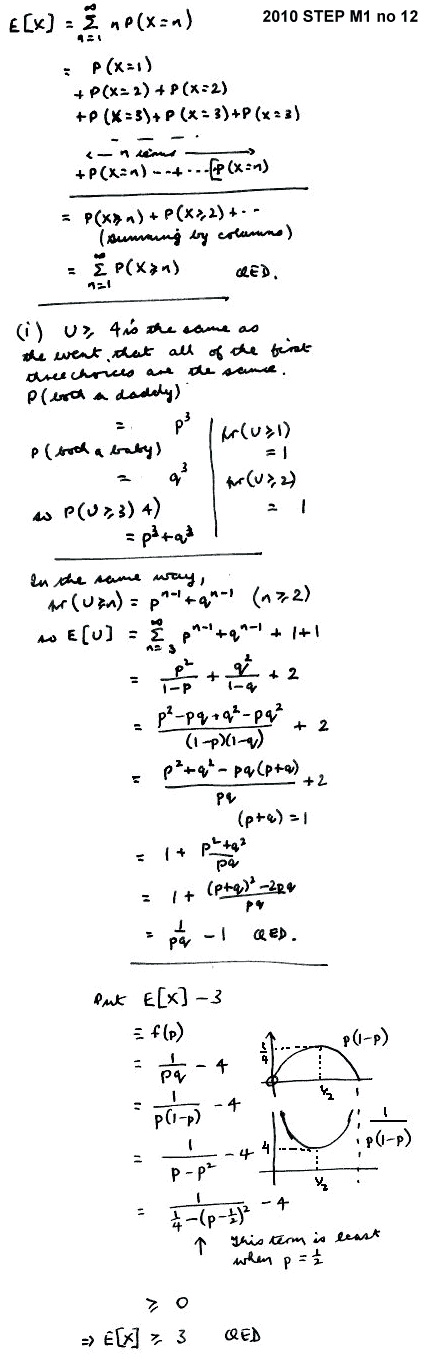 2010 STEP M1 no 12
E[X] = ∞ Σ n=1 n P(X=n)
= P(X=1)
+ P(X=2) + P(X=2)
+ P(X=3) + P(X=3) + P(X=3)
- - - -
<--- n terms --->
+P(X=n) - - + - - - [+P(X=n)
= P(X≥n) + P(X≥2) + - -
(summing by columns)
= ∞ Σ n=1 P(X≥n) QED.
(i) U ≥ 4 is the same as
the event that all of the first
three choices are the same.
P(both a daddy)
= p³
P(both a baby)
= q³
so P(U≥3) 4)
= p³+q³
pr(U≥1)
= 1
pr(U≥2)
= 1
In the same way,
pr(U≥n) = pⁿ⁻¹+qⁿ⁻¹ (n≥2)
so E[U] = ∞ Σ n=3 pⁿ⁻¹+qⁿ⁻¹ + 1+1
= p²/(1-p) + q²/(1-q) + 2
= (p²-pq+q²-pq²)/((1-p)(1-q)) + 2
= (p²+q²-pq(p+q))/pq + 2
(p+q)=1
= 1 + (p²+q²)/pq
= 1 + ((p+q)²-2pq)/pq
= 1/pq - 1 QED.
Put E[X] - 3
≡ f(p)
= 1/pq - 4
= 1/(p(1-p)) - 4
= 1/(p-p²) - 4
= 1/(¼-(p-½)²) - 4
↑ This term is least
when p = ½
≥ 0
⇒ E[X] ≥ 3 QED
p(1-p)
½
4
1/(p(1-p))
½